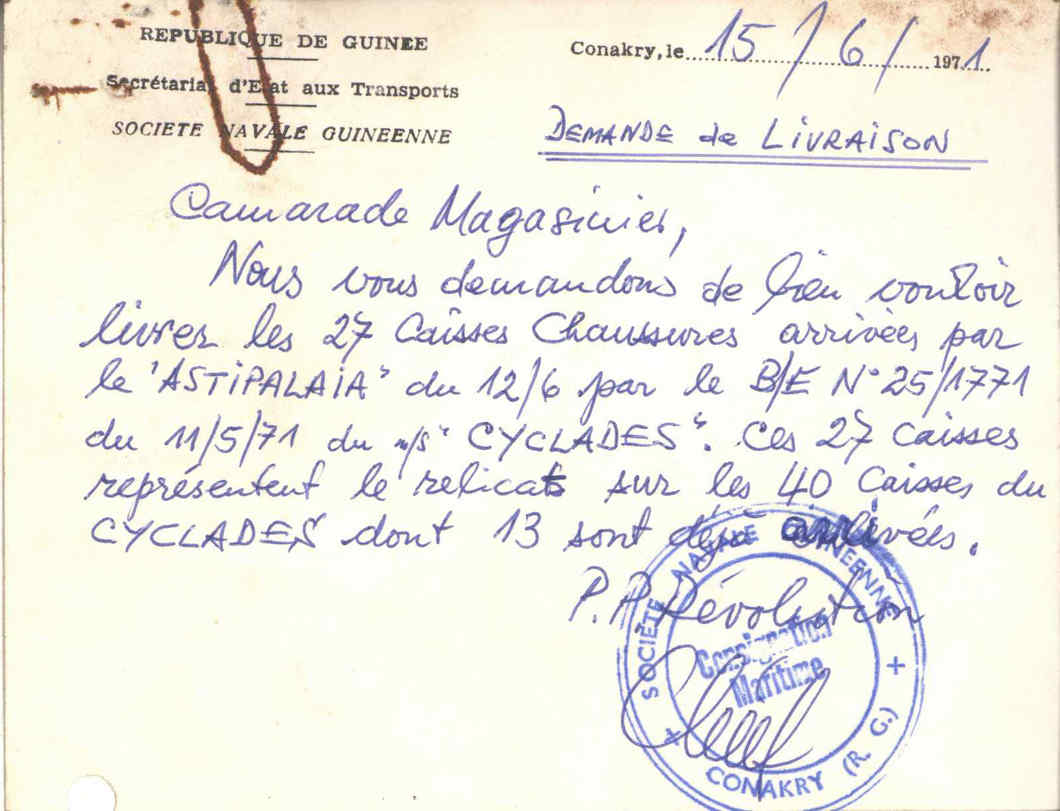 REPUBLIQUE DE GUINEE
Secrétariat d'Etat aux Transports
SOCIETE NAVALE GUINEENNE
Conakry, le 15/6/1971
DEMANDE de LiVRAiSON
Camarade Magasinier,
Nous vous demandons de bien vouloir
livrer les 27 Caisses Chaussures arrivées par
le "ASTiPALAiA" du 12/6 par le B/E N° 25/1771
du 11/5/71 du m/s "CYCLADES". Ces 27 Caisses
représentent le relicat sur les 40 Caisses du
CYCLADES dont 13 sont déjà arrivées.
P.P. Révolution
SOCIÉTÉ NAVALE GUINEENNE
Consignation
Maritime
CONAKRY (R. G.)